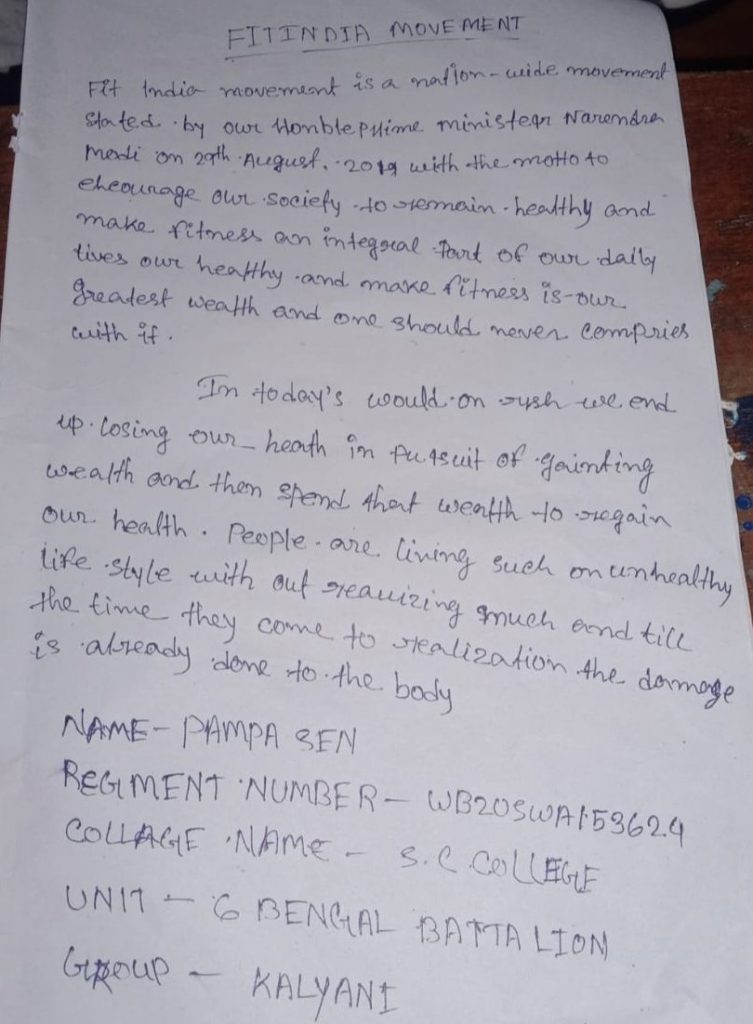 FITINDIA MOVEMENT
Fit India movement is a nation-wide movement
stated by our Honble prime minister Narendra
Modi on 29th August, 2019 with the motto to
eheourage our society to remain healthy and
make fitness an integral Part of our daily
lives our healthy and make fitness is our
greatest wealth and one should never compries
with it.
In today's would on rush we end
up losing our heath in Pursuit of gainting
wealth and then spend that wealth to regain
our health. People are living such on unhealthy
life style with out reauizing much and till
the time they come to realization the damage
is already done to the body
NAME- PAMPA SEN
REGIMENT NUMBER- WB20SWA153624
COLLAGE NAME - S.C COLLEGE
UNIT - 6 BENGAL BATTALION
GROUP - KALYANI